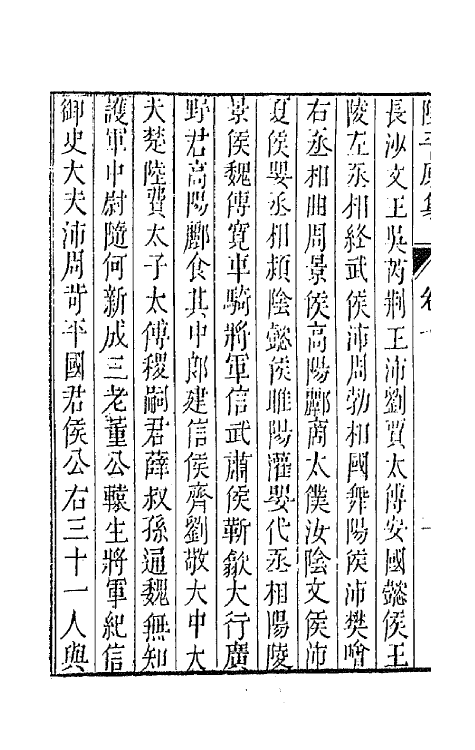 陸平原集 卷
長沙文王吳芮荆王沛劉賈太傅安國懿侯王
陵左丞相絳武侯沛周勃相國舞陽侯沛樊噲
右丞相曲周景侯高陽酈商太僕汝陰文侯沛
夏侯嬰丞相潁陰懿侯睢陽灌嬰代丞相陽陵
景侯魏傅寛車騎將軍信武肅侯靳歙大行廣
野君高陽酈食其中郎建信侯齊劉敬大中大
夫楚陸賈太子太傅稷嗣君薛叔孫通魏無知
護軍中尉隨何新成三老董公轅生將軍紀信
御史大夫沛周苛平國君侯公右三十一人與